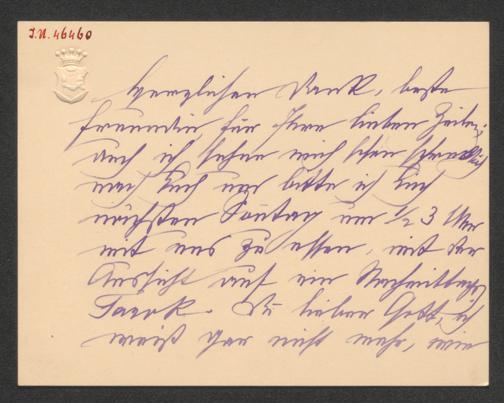 I.N. 46460
Herzlichen Dank, beste
Freundin, für Ihre lieben Zeilen;
auch ich sehne mich schon schrecklich
nach Euch und bitte ich Euch
nächsten Sontag um 1/2 3 Uhr
mit uns zu essen, mit der
Aussicht auf ein Nachmittags
Tarok. Du lieber Gott, ich
weiß gar nicht mehr, wie